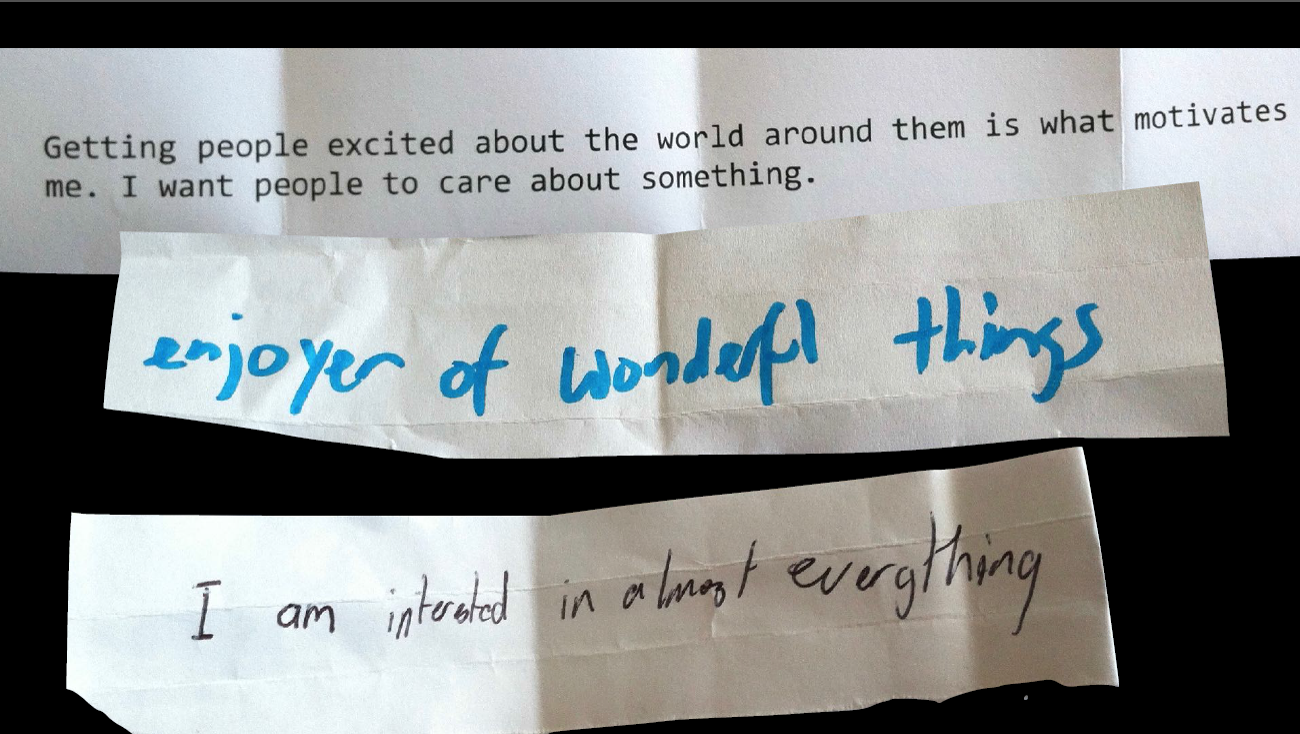 Getting people excited about the world around them is what motivates
me. I want people to care about something.
enjoyer of wonderfl things
I am intersted in almost everything